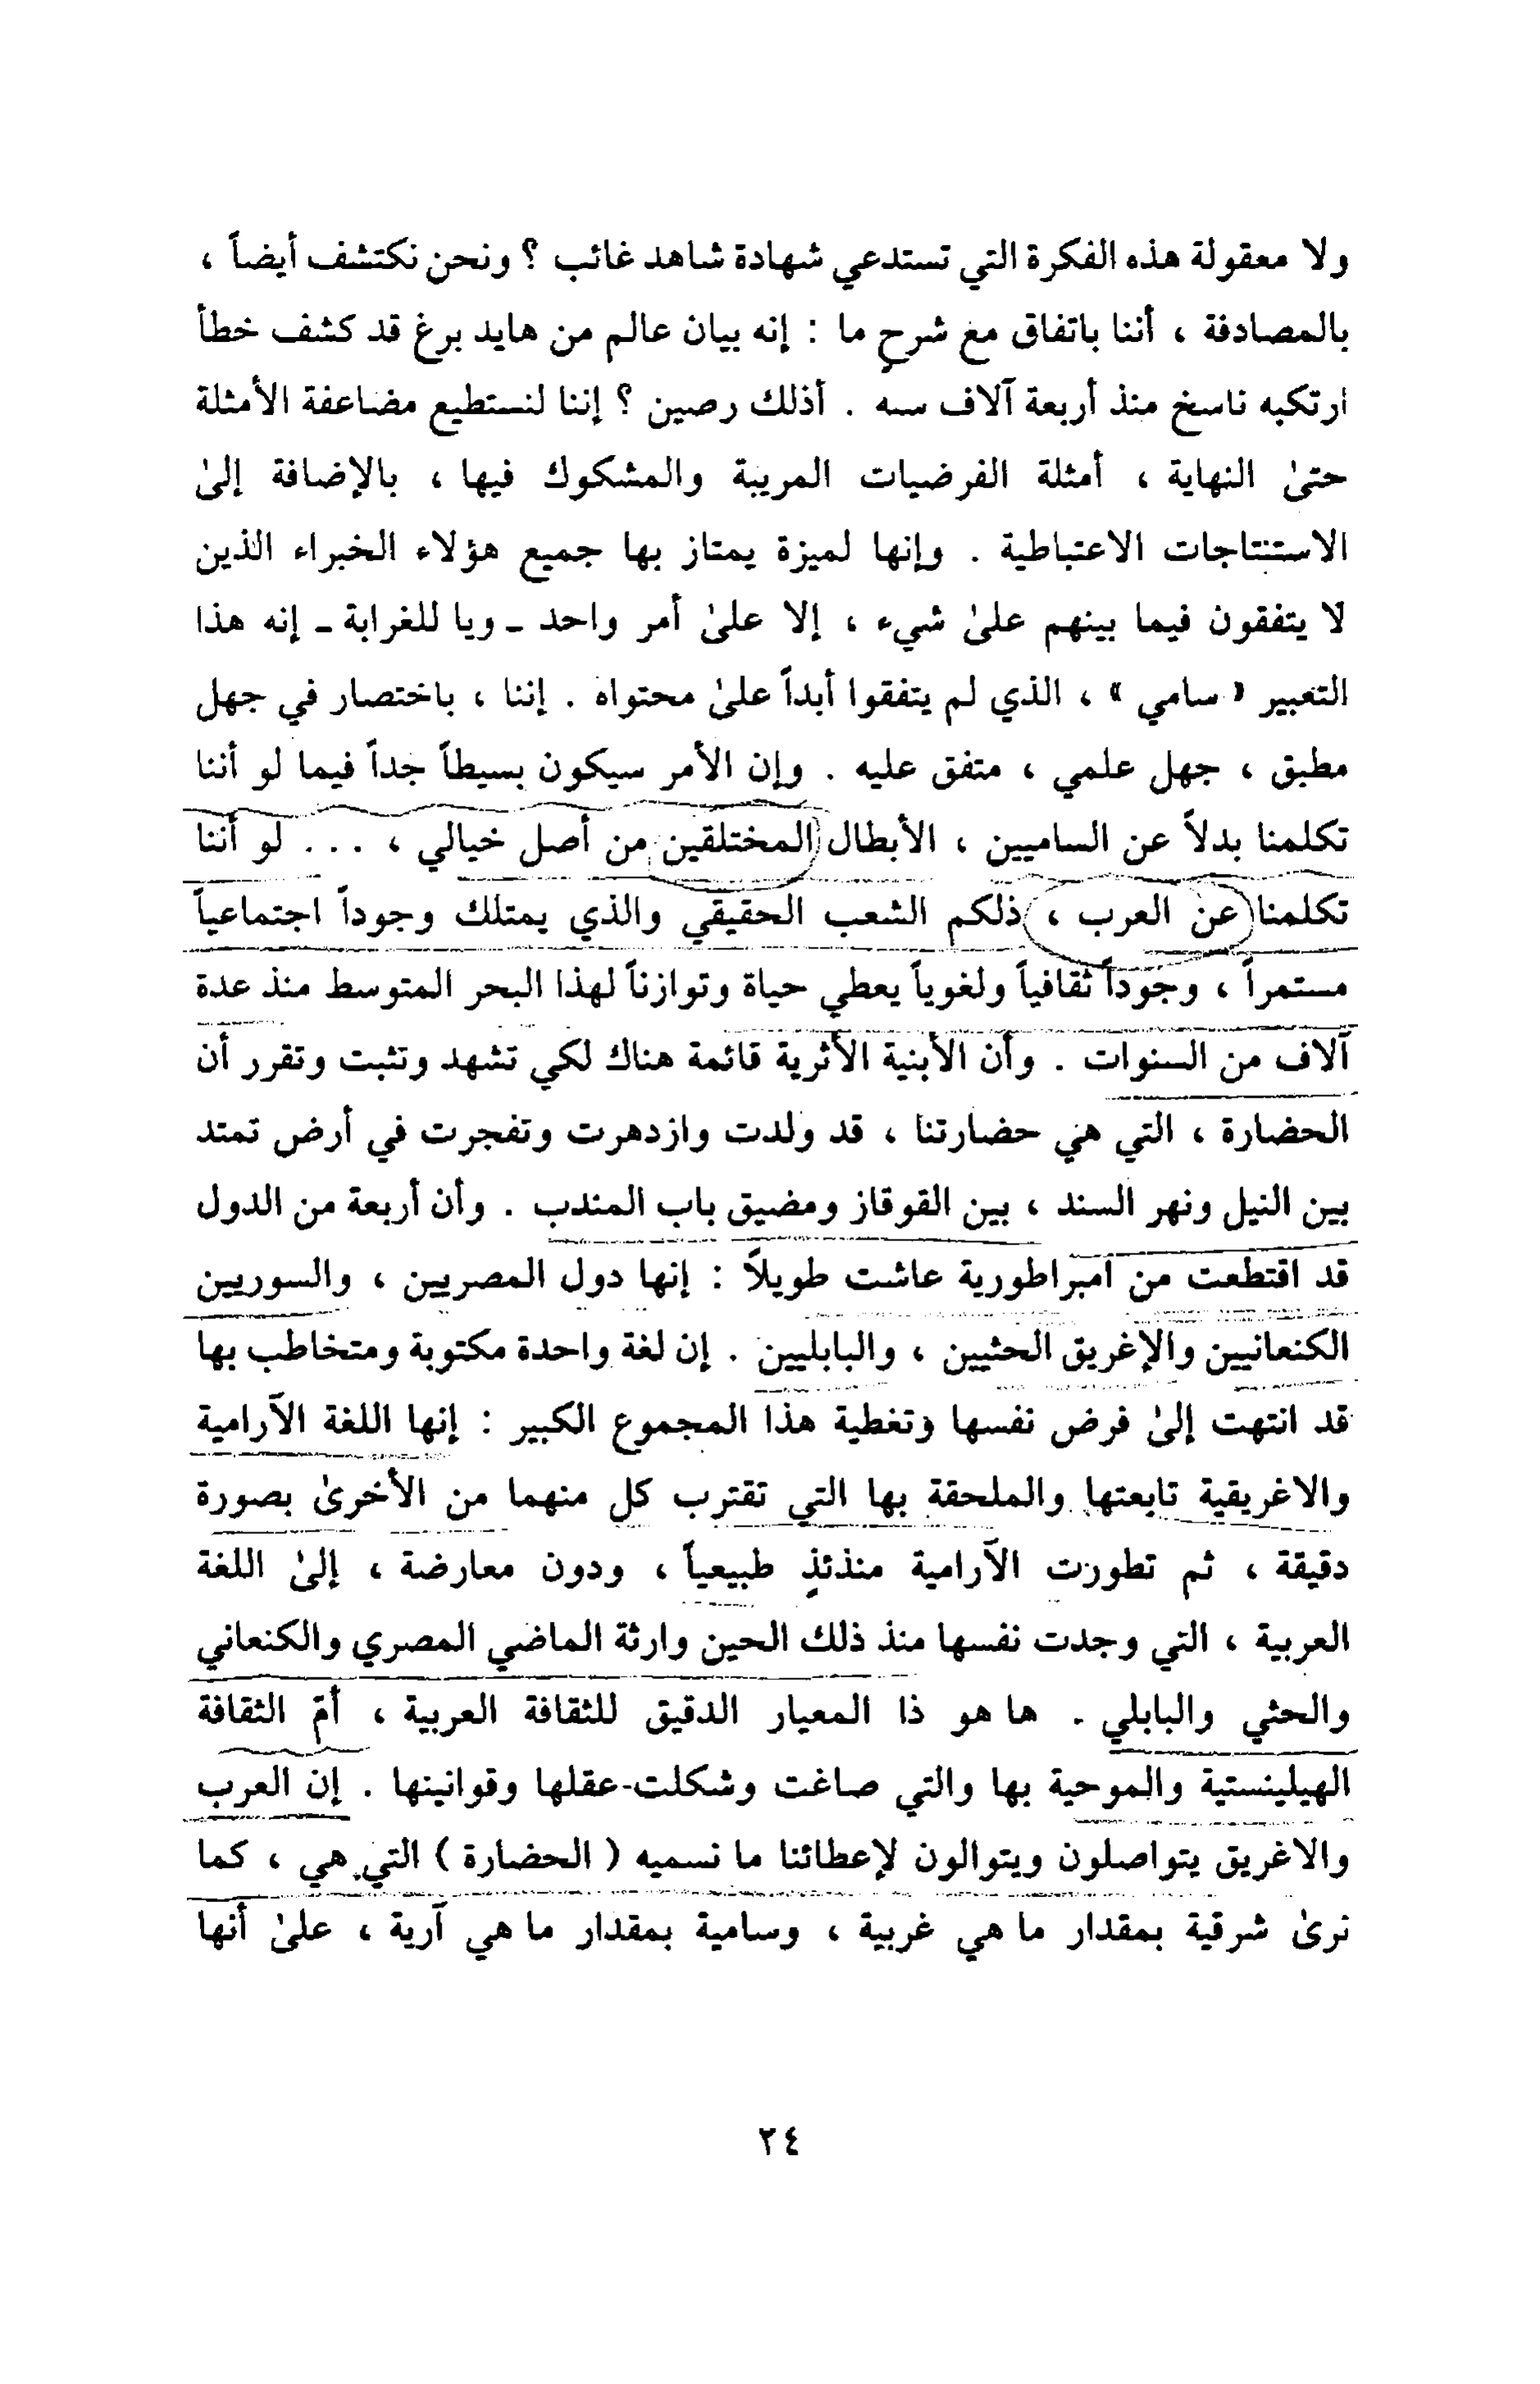 ولا معقولة هذه الفكرة التي تستدعي شهادة شاهد غائب ؟ ونحن نكتشف أيضاً ،
بالمصادفة ، أننا باتفاق مع شرحٍ ما : إنه بيان عالم من هايد برغ قد كشف خطأ
ارتكبه ناسخ منذ أربعة آلاف سنه . أذلك رصين ؟ إننا لنستطيع مضاعفة الأمثلة
حتىٰ النهاية ، أمثلة الفرضيات المريبة والمشكوك فيها ، بالإضافة إلىٰ
الاستنتاجات الاعتباطية . وإنها لميزة يمتاز بها جميع هؤلاء الخبراء الذين
لا يتفقون فيما بينهم علىٰ شيء ، إلا علىٰ أمر واحد ـ ويا للغرابة ـ إنه هذا
التعبير « سامي » ، الذي لم يتفقوا أبداً علىٰ محتواه . إننا ، باختصار في جهل
مطبق ، جهل علمي ، متفق عليه . وإن الأمر سيكون بسيطاً جداً فيما لو أننا
تكلمنا بدلاً عن الساميين ، الأبطال المختلقين من أصل خيالي ، ... لو أننا
تكلمنا عن العرب ، ذلكم الشعب الحقيقي والذي يمتلك وجوداً اجتماعياً
مستمراً ، وجوداً ثقافياً ولغوياً يعطي حياة وتوازناً لهذا البحر المتوسط منذ عدة
آلاف من السنوات . وأن الأبنية الأثرية قائمة هناك لكي تشهد وتثبت وتقرر أن
الحضارة ، التي هي حضارتنا ، قد ولدت وازدهرت وتفجرت في أرض تمتد
بين النيل ونهر السند ، بين القوقاز ومضيق باب المندب . وأن أربعة من الدول
قد اقتطعت من امبراطورية عاشت طويلاً : إنها دول المصريين ، والسوريين
الكنعانيين والإغريق الحثيين ، والبابليين . إن لغة واحدة مكتوبة ومتخاطب بها
قد انتهت إلىٰ فرض نفسها وتغطية هذا المجموع الكبير : إنها اللغة الآرامية
والاغريقية تابعتها والملحقة بها التي تقترب كل منهما من الأخرىٰ بصورة
دقيقة ، ثم تطورت الآرامية منذئذٍ طبيعياً ، ودون معارضة ، إلىٰ اللغة
العربية ، التي وجدت نفسها منذ ذلك الحين وارثة الماضي المصري والكنعاني
والحثي والبابلي . ها هو ذا المعيار الدقيق للثقافة العربية ، أمّ الثقافة
الهيلينستية والموحية بها والتي صاغت وشكلت-عقلها وقوانينها . إن العرب
والاغريق يتواصلون ويتوالون لإعطائنا ما نسميه ( الحضارة ) التي هي ، كما
نرىٰ شرقية بمقدار ما هي غربية ، وسامية بمقدار ما هي آرية ، علىٰ أنها
٢٤